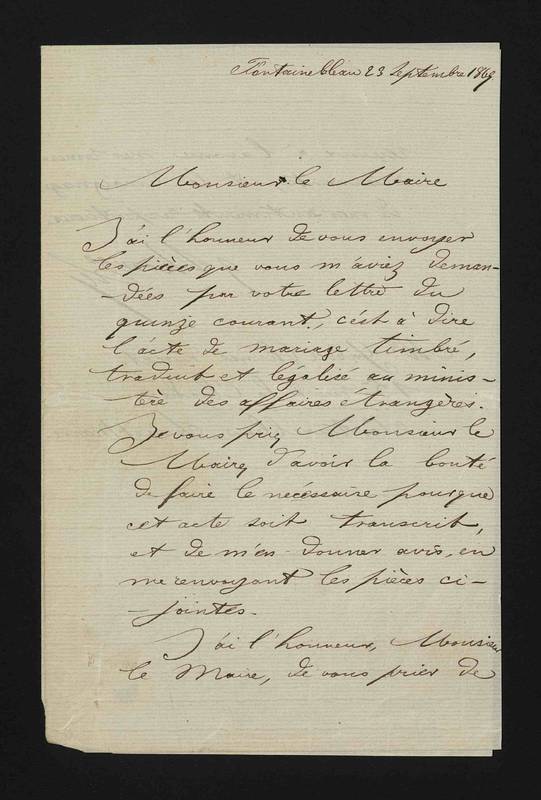 Fontainebleau 23 Septembre 1869
Monsieur le Maire
J'ai l'honneur de vous envoyer
les pièces que vous m'aviez deman-
-dées par votre lettre du
quinze courant, c'est à dire
l'acte de mariage timbré,
traduit et légalisé au minis-
-tère des affaires étrangères.
Je vous prie, Monsieur le
Maire, d'avoir la bonté
de faire le nécessaire pourque
cet acte soit transcrit,
et de m'en donner avis, en
me renvoyant les pièces ci-
-jointes.
J'ai l'honneur, Monsieur
le Maire, de vous prier de